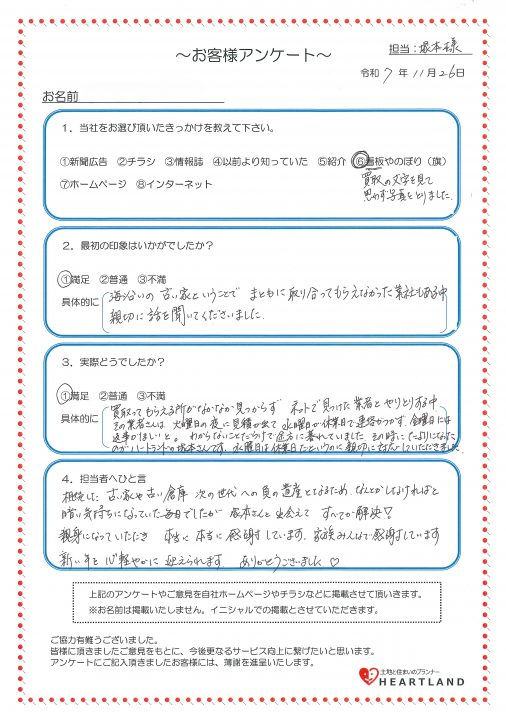 ～お客様アンケート～
担当：塚本様
令和 7 年 11 月 26 日
お名前
1．当社をお選び頂いたきっかけを教えて下さい。
①新聞広告 ②チラシ ③情報誌 ④以前より知っていた ⑤紹介 ⑥看板やのぼり（旗）
⑦ホームページ ⑧インターネット
買取の文字を見て
思わず写真をとりました。
2．最初の印象はいかがでしたか？
①満足 ②普通 ③不満
具体的に
海沿いの古い家ということで まともに取り合ってもらえなかった業社もある中
親切に話を聞いてくださいました。
3．実際どうでしたか？
①満足 ②普通 ③不満
具体的に
買取ってもらえる所がなかなか見つからず ネットで見つけた業者とやりとりする中
その業者さんは 火曜日の夜に見積が出て 水曜日が休業日で連絡がつかず、金曜日には
返事がほしいと。わからないことだらけで途方に暮れていました その時に たよりになった
のがハートランドの塚本さんです。水曜日は休業日だというのに 親切に対応していただきました
4．担当者へひと言
相続した 古い家や古い倉庫 次の世代への負の遺産となるため、なんとかしなければと
暗い気持ちになっていた毎日でしたが 塚本さんと出会えて すべてが解決！
親身になっていただき 本当に本当に感謝しています。家族みんなで感謝しています
新い年を心軽やかに迎えられます。 ありがとうございました♡
上記のアンケートやご意見を自社ホームページやチラシなどに掲載させて頂いきます。
※お名前は掲載いたしません。イニシャルでの掲載とさせていただきます。
ご協力有難うございました。
皆様に頂きましたご意見をもとに、今後更なるサービス向上に繋げたいと思います。
アンケートにご記入頂きましたお客様には、薄謝を進呈いたします。
土地と住まいのプランナー
HEARTLAND